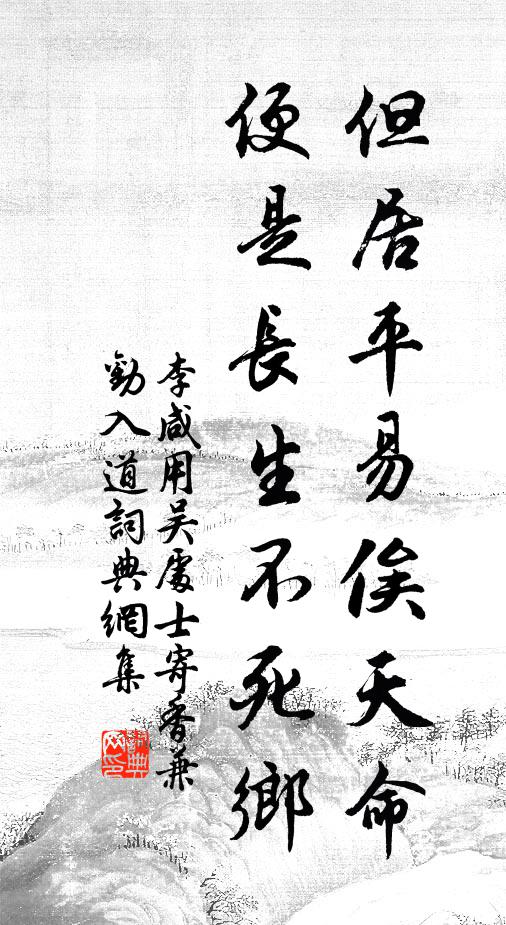 但居平易俟天命
便是長生不死鄉
李咸用吴處士寄香兼
勸入道詞典網集